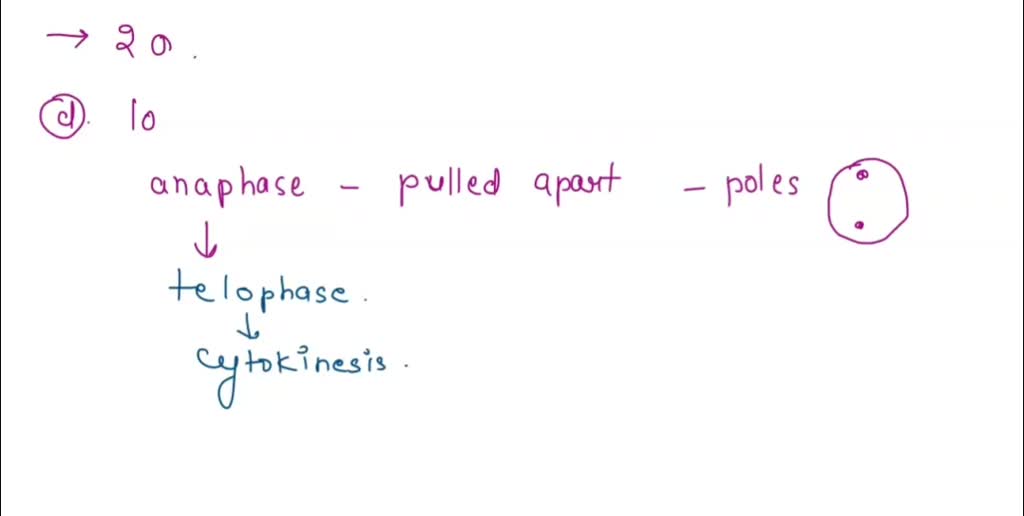 → 20.
(d). 10
anaphase - pulled apart - poles
↓
telophase.
↓
cytokinesis.